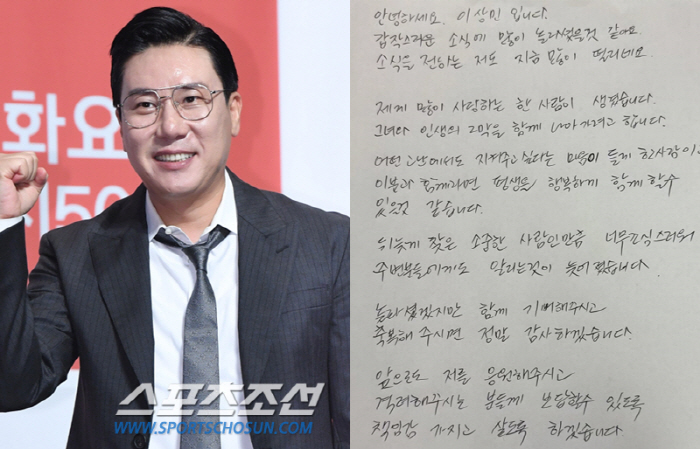 화요
50
스포츠조선
WWW.SPORTSCHOSUN.COM
안녕하세요. 이상민 입니다.
갑작스러운 소식에 많이 놀라셨을것 같아요.
소식을 전하는 저도 지금 많이 떨리네요.
제게 많이 사랑하는 한 사람이 생겼습니다.
그녀와 인생의 2막을 함께 나아가려고 합니다.
어떤 고난에서도 지켜주고 싶다는 마음이 들게 한 사람이고
이분과 함께라면 평생을 행복하게 함께 할수
있을것 같습니다.
뒤늦게 찾은 소중한 사람인만큼 너무 조심스러워
주변분들에게도 알리는것이 늦어졌습니다.
놀라셨겠지만 함께 기뻐해주시고
축복해 주시면 정말 감사하겠습니다.
앞으로도 저를 응원해주시고
격려해주시는 분들께 보답할수 있도록
책임감 가지고 살도록 하겠습니다